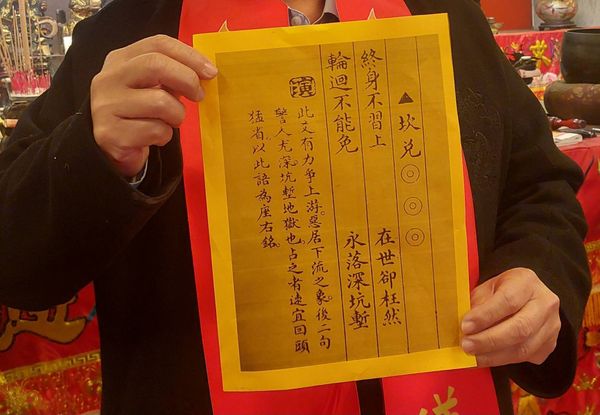 ▲坎兌◎◎◎
終身不習上 在世卻枉然
輪迴不能免 永落深坑塹
演
此文有力爭上游。惡居下流之象。後二句
警人尤深。坑塹地獄也。占之者速宜回頭
猛省。以此語為座右銘。